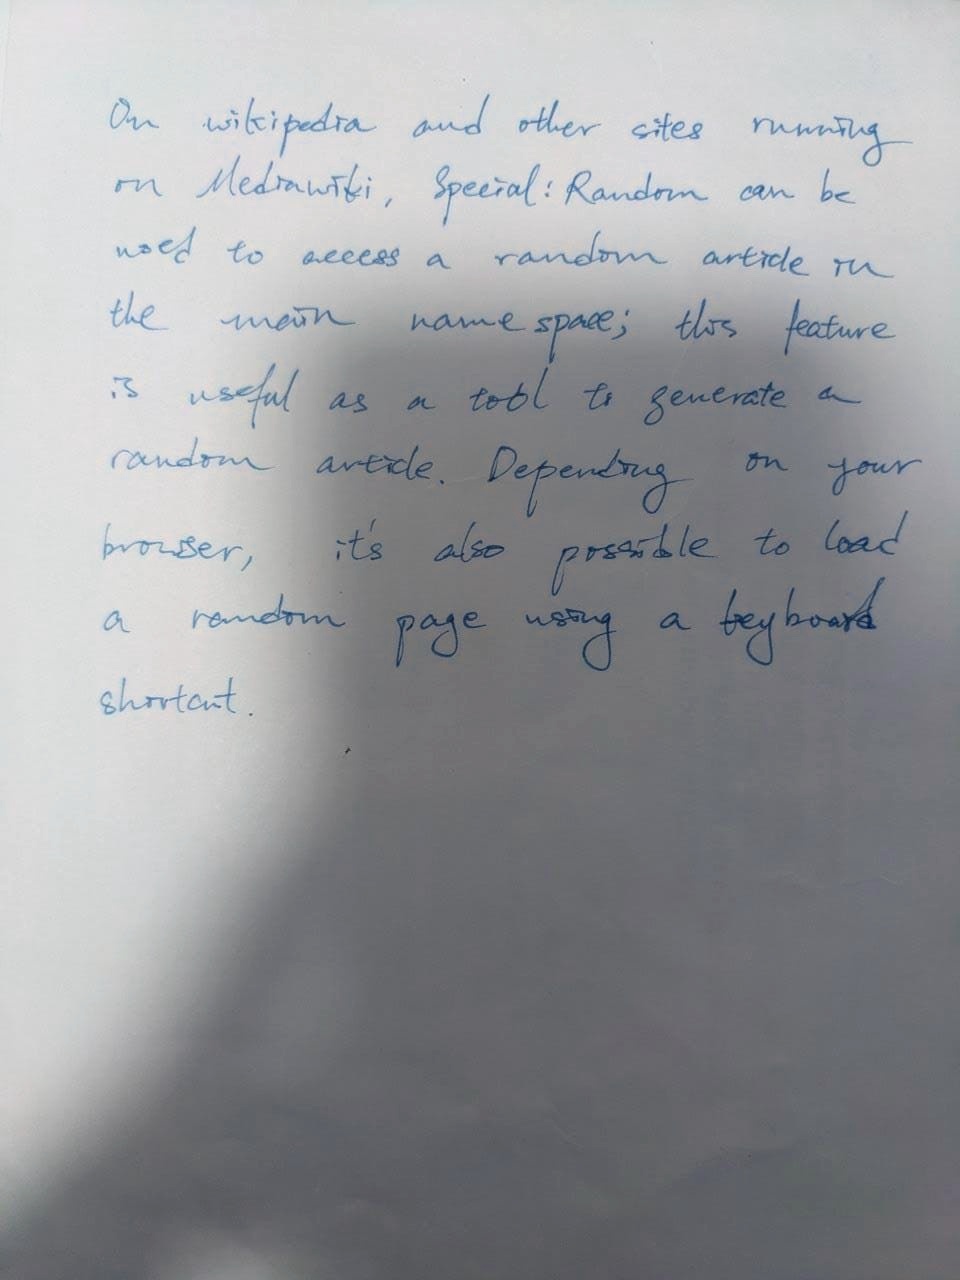 On wikipedia and other sites running
on Mediawiki, Special: Random can be
used to access a random article in
the main name space; this feature
is useful as a tool to generate a
random article. Depending on your
browser, it's also possible to load
a random page using a keyboard
shortcut.